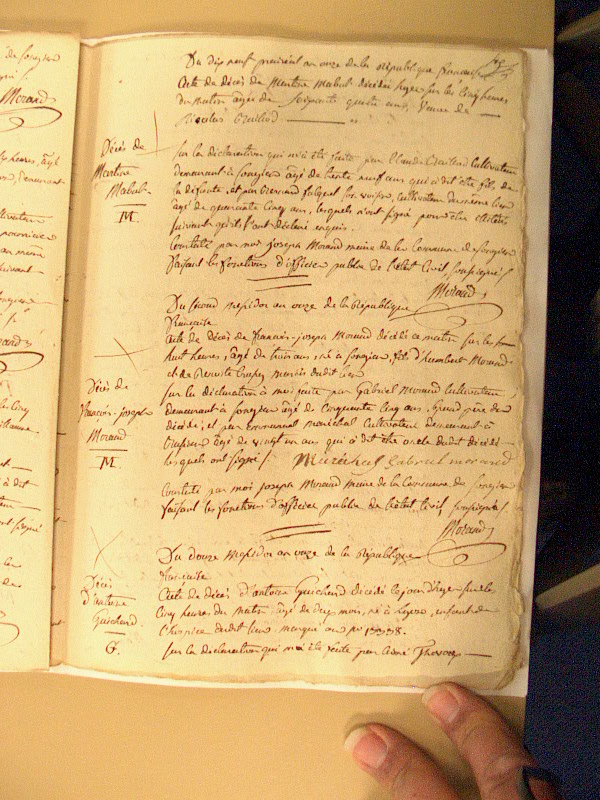 Du dix neuf prairial an onze de la République française
Acte de décès de Martine Mabul décédée hyer sur les cinq heures
du matin agée de soixante quatre ans, veuve de
Nicolas Guilard
Décès de
Martine
Mabul
M.
sur la declaration qui m'a été faite par Claude Guilard cultivateur
demeurant à Songieu agé de trente neuf ans qui a dit etre fils de
la défunte, et par falquet son voisin, cultivateur du même lieu
agé de quarante cinq ans, lesquels n'ont signé pour etre illiterés
suivant qu'ils l'ont déclaré enquis.
Constaté par moi Joseph Morand maire de la Commune de Songieu
faisant les fonctions d'officier public de l'état Civil soussigné
Morand
Du second messidor an onze de la République
française
Acte de décès de françois-joseph Morand décédé ce matin sur les
huit heures, agé de trois ans, né à Songieu, fils d'humbert Morand
et de mariés dudit lieu
Décès de
françois-joseph
Morand
M.
sur la déclaration à moi faite par Gabriel Morand Cultivateur
demeurant à Songieu agé de Cinquante cinq ans, grand père du
décédé, et par maréchal cultivateur demeurant à
agé de vingt un ans qui a dit etre oncle dudit décédé
lesquels ont signé Maréchal Gabriel morand
Constaté par moi Joseph Morand maire de la Commune de Songieu
faisant les fonctions d'officier public de l'état Civil soussigné
Morand
Du douze messidor an onze de la République
francaise
Décès
d'antoine
Guichard
G.
Acte de décès d'antoine Guichard décédé le jour d'hyer sur les
Cinq heures du matin agé de dix mois, né à , enfant de
l'hospice dudit lieu marqué au nº
sur la declaration qui m'a été faite par André